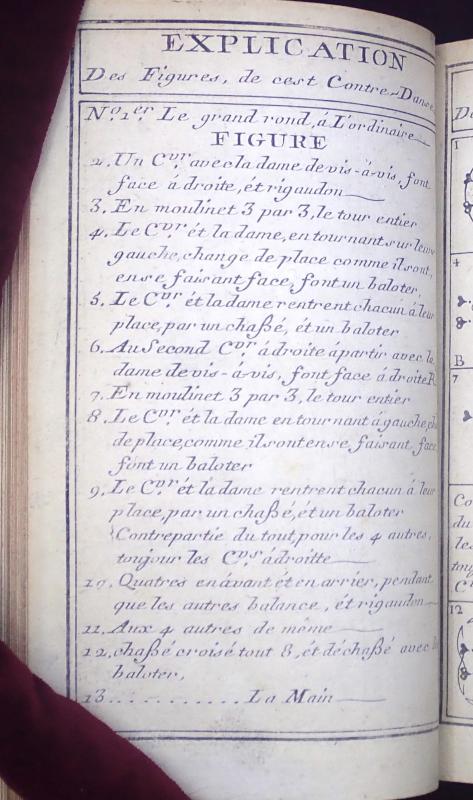 EXPLICATION
Des Figures, de cest Contre-Dance
N.º 1.er Le grand rond, á L'ordinaire
FIGURE
2. Un C.vr avec la dame de vis-à-vis, font
face á droite, ét rigaudon
3. En moulinet 3 par 3, le tour entier
4. Le C.vr ét la dame, en tournant sur leur
gauche, change de place comme il sont,
en se faisant face, font un baloter
5. Le C.vr ét la dame rentrent chacun á leur
place, par un chaßé, ét un baloter
6. Au Second C.vr á droite á partir avec la
dame de vis-à-vis, font face á droite
7. En moulinet 3 par 3, le tour entier
8. Le C.vr ét la dame en tournant á gauche,
de place, comme ils ont en se faisant face
font un baloter
9. Le C.vr ét la dame rentrent chacun á leur
place, par un chaßé, ét un baloter
Contrepartie du tout pour les 4 autres,
toujour les C.vs á droitte
10. Quatres en avant ét en arrier, pendant
que les autres balance, ét rigaudon
11. Aux 4 autres de même
12. chaßé croisé tout 8, ét déchaßé avec
baloter,
13 ........... La Main
1
4
B
7
Co
du
les
C
12